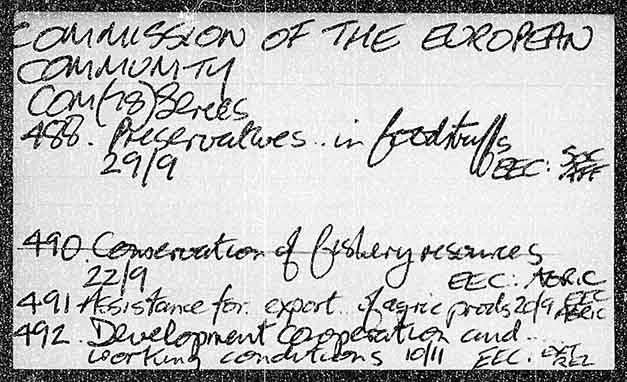 COMMISSION OF THE EUROPEAN
COMMUNITY
COM(78)Series
488. Preservatives.. in foodstuffs
29/9 EEC: SOC AFF
490. Conservation of fishery resources
22/9 EEC: AGRIC
491 Assistance for.. export.. of agric prods 20/9 EEC AGRIC
492. Development cooperation and...
working conditions 10/11 EEC: EXT REL